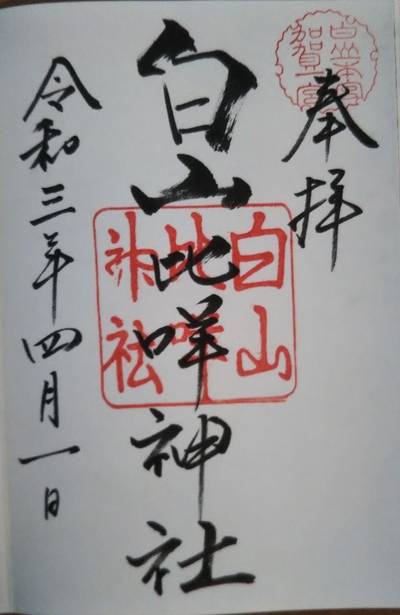 奉拝
白山比咩神社
令和三年四月一日
白山
比咩
神社
加賀一宮